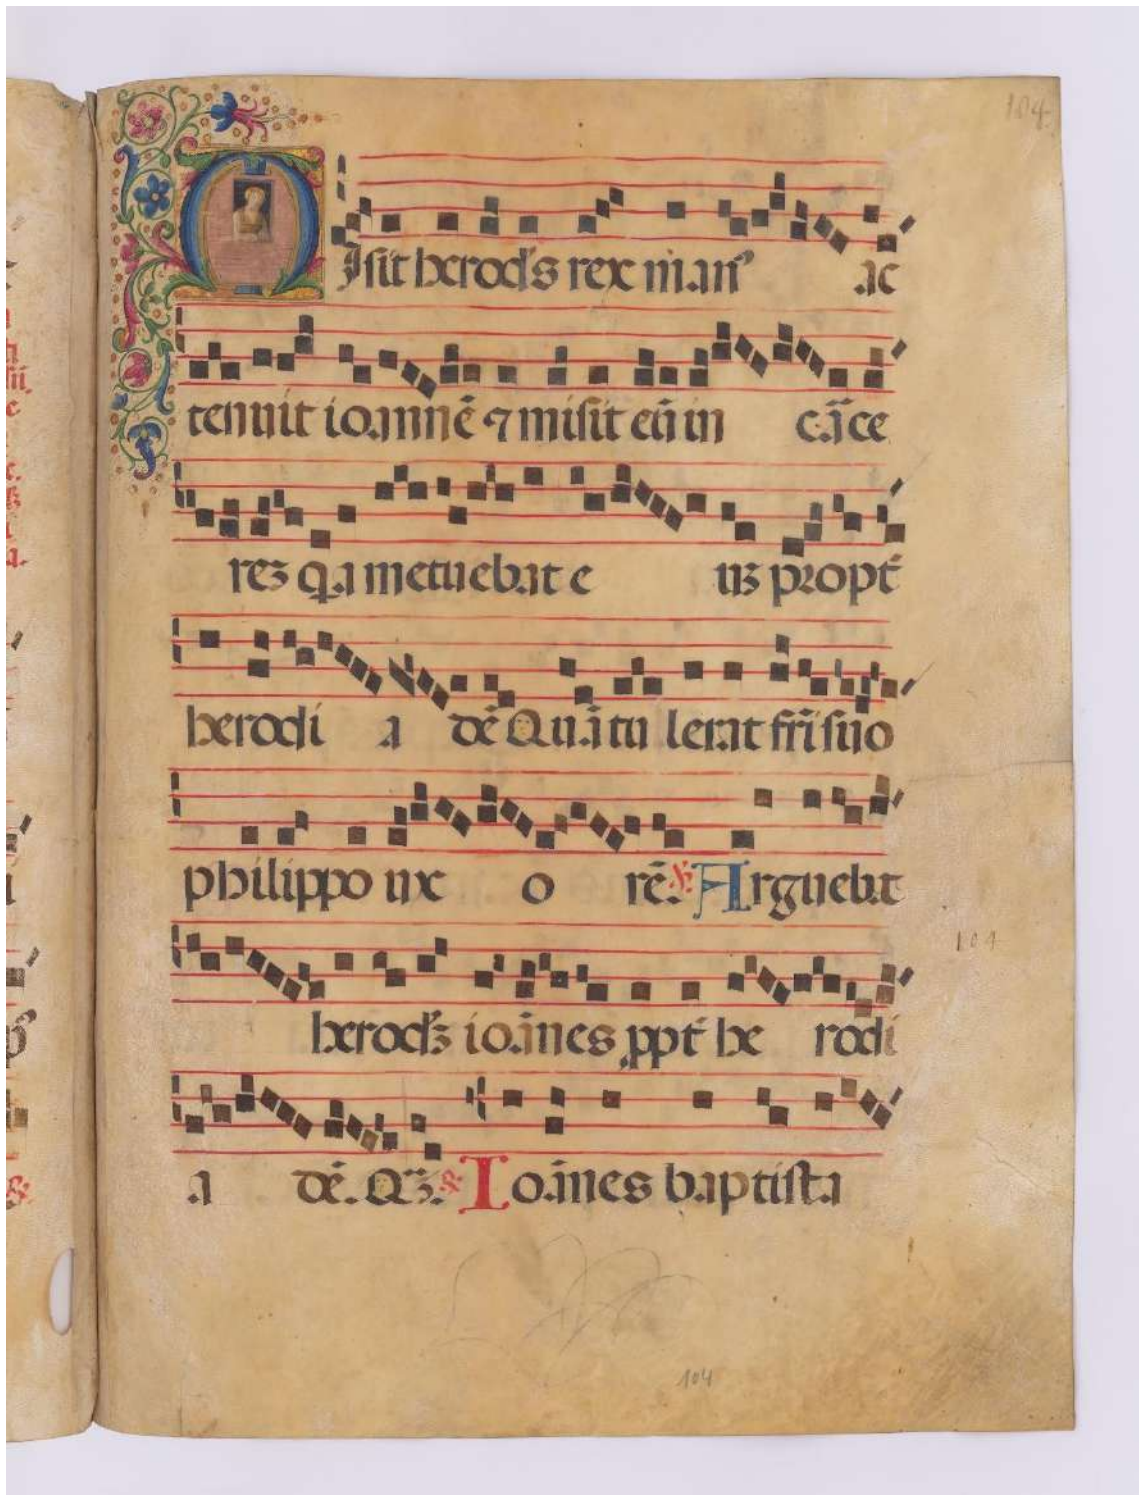 104
MIsit herodes rex man⁹ ac
tenuit ioannē ⁊ misit eū in cārce
reꝫ q.a metuebat e uꝫ propt̄
herodi a dē Quā tu lerat fr̄i suo
philippo ux o rē. ℣ Arguebat
104
herodēꝫ ioānes ꝓpt̄ he rodi
a dē. Qā. ℣ Ioānes baptista
104